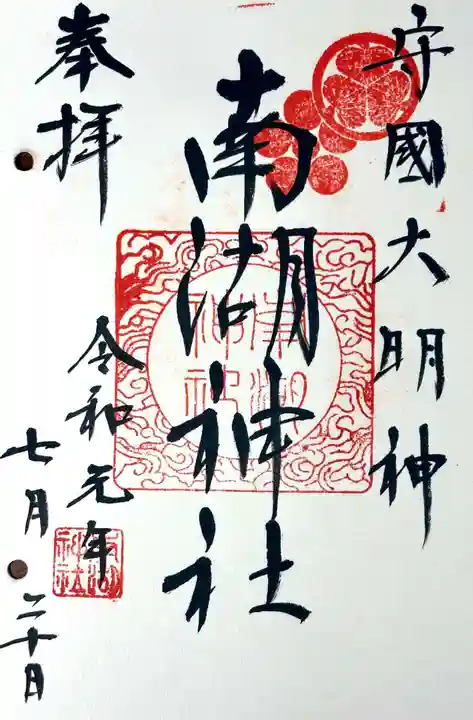 守國大明神
南湖神社
奉拝
令和元年
七月二十日
南湖神社
南湖神社